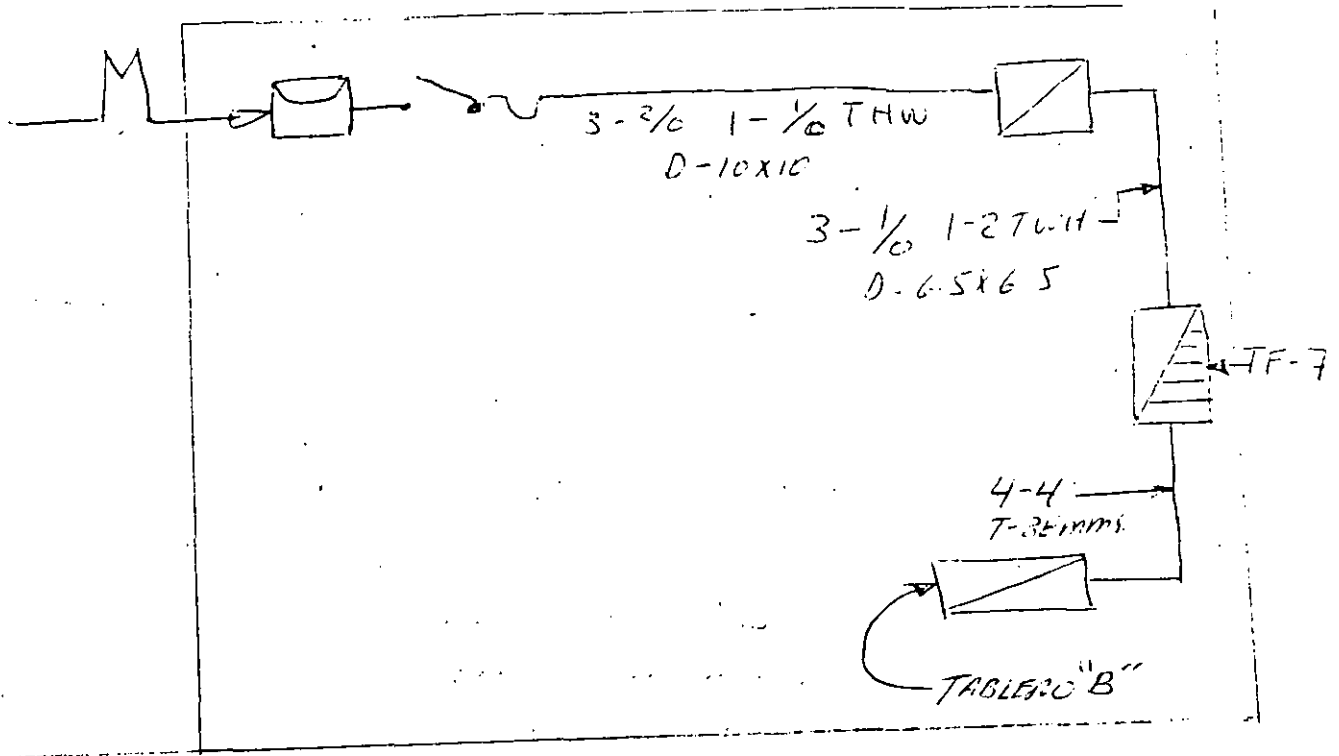 3-2/0 1-1/0 THW
D-10x10
3-1/0 1-2 TWH
D-6.5x6 5
TF-7
4-4
T-35mms.
TABLERO "B"